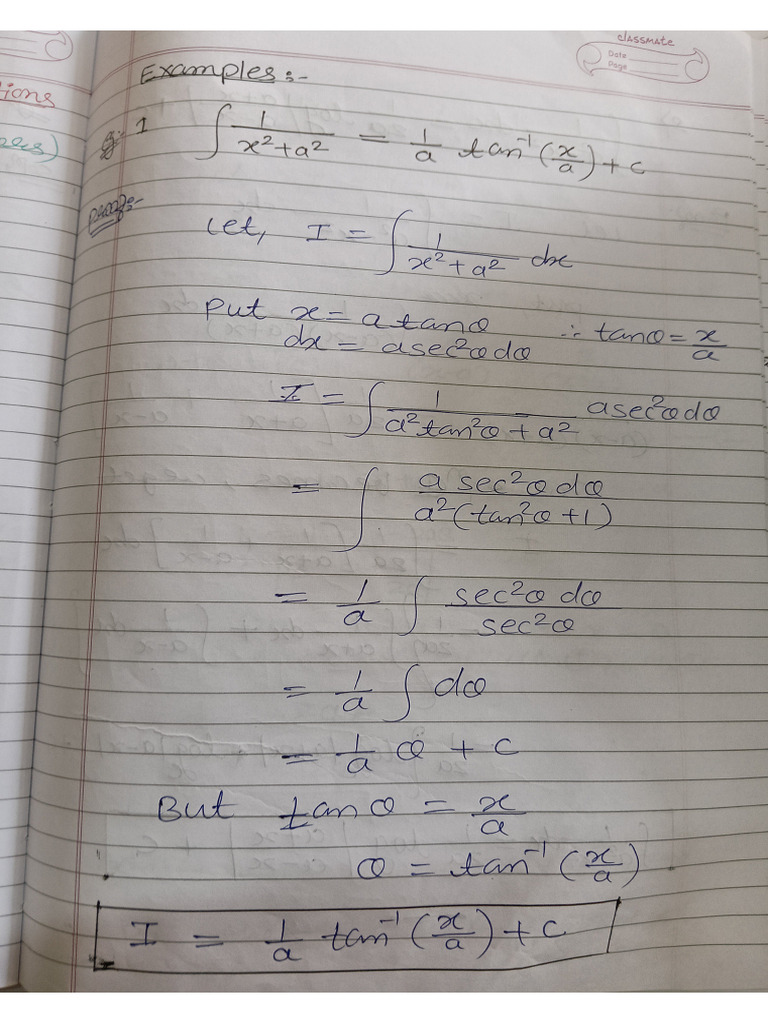 classmate
Date
Page
Examples:-
eg. 1 ∫ 1/(x²+a²) = 1/a tan⁻¹(x/a)+c
proof:-
Let, I = ∫ 1/(x²+a²) dx
Put x = a tanθ ∴ tanθ = x/a
dx = a sec²θ dθ
I = ∫ 1/(a²tan²θ + a²) a sec²θ dθ
= ∫ a sec²θ dθ/a²(tan²θ+1)
= 1/a ∫ sec²θ dθ/sec²θ
= 1/a ∫ dθ
= 1/a θ + c
But tanθ = x/a
θ = tan⁻¹(x/a)
I = 1/a tan⁻¹(x/a)+c